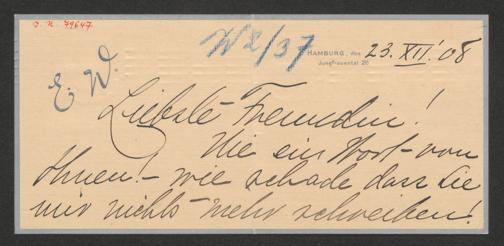 J. N. 79647
W2/37
HAMBURG, den 23. XII. 08
Jungfrauental 20
E. W.
Liebste Freundin!
Nie ein Wort von
Ihnen! – wie schade dass Sie
mir nichts mehr schreiben!